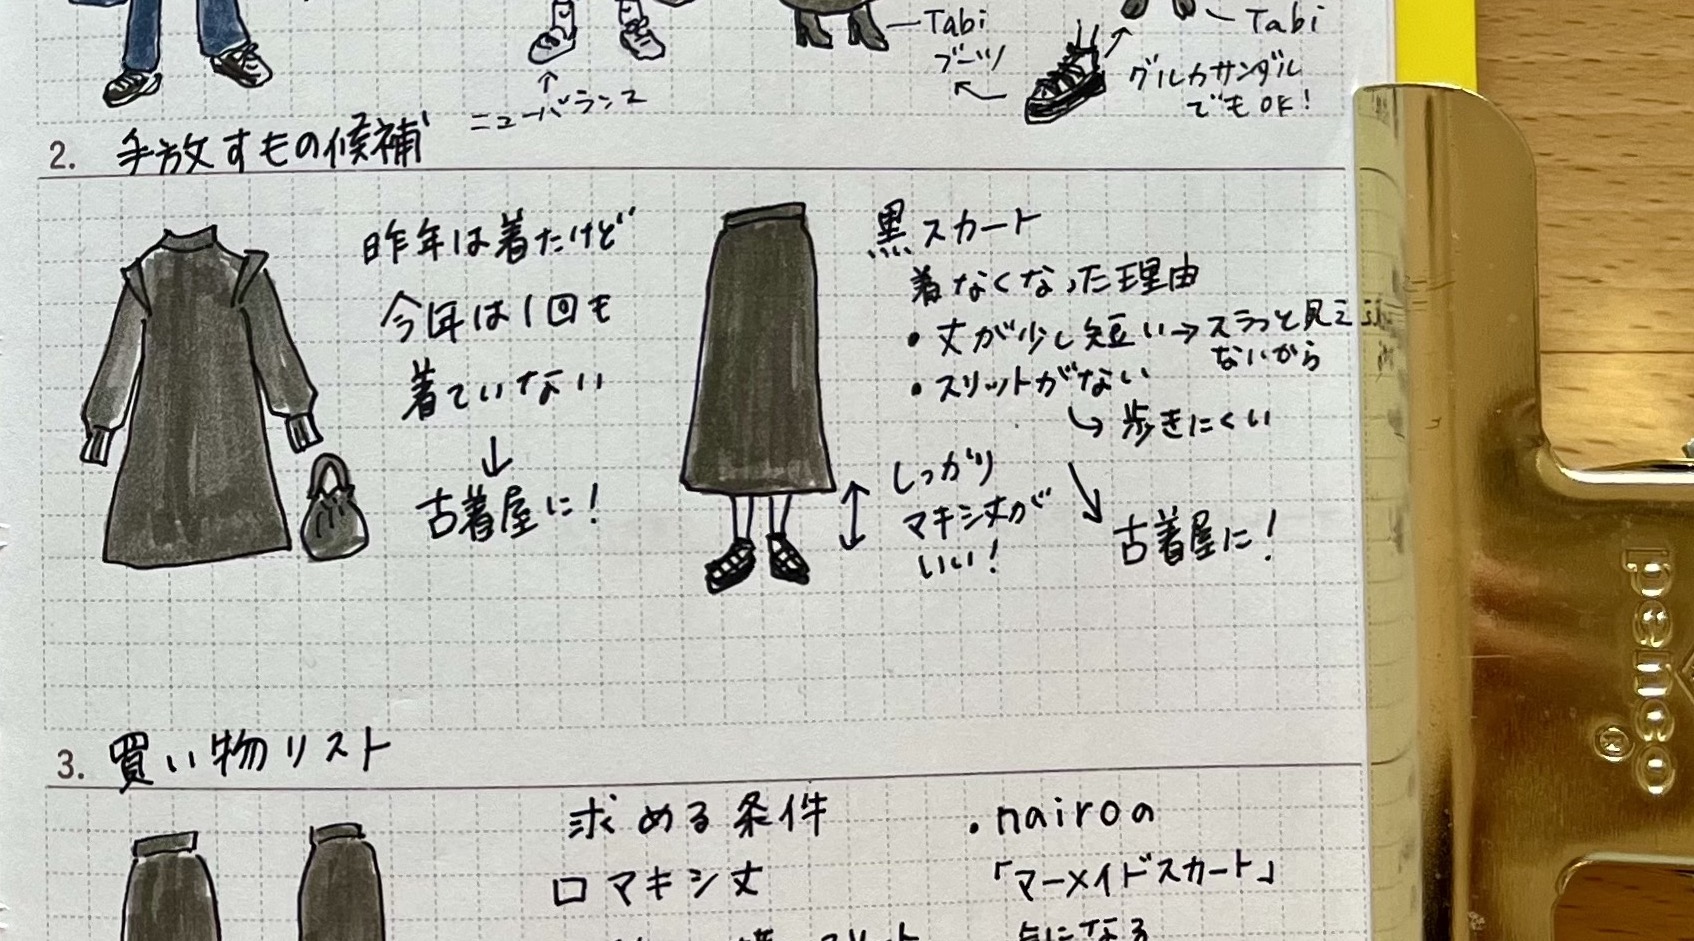 Tabi
ブーツ
Tabi
グルカサンダル
でもOK!
ニューバランス
2. 手放すもの候補
昨年は着たけど
今年は1回も
着ていない
↓
古着屋に!
黒スカート
着なくなった理由
・丈が少し短い→スラっと見え
ないから
・スリットがない
↪歩きにくい
しっかり
マキシ丈が
いい!
古着屋に!
3. 買い物リスト
求める条件
□マキシ丈
・nairoの
「マーメイドスカート」
気になる
penco